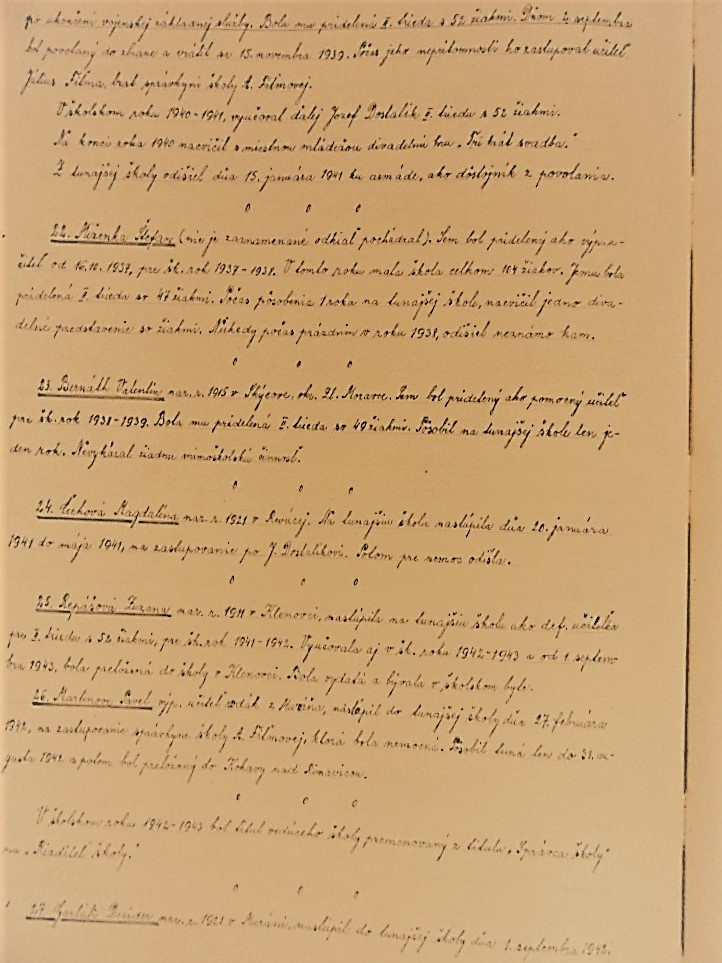 po ukončení vojenskej základnej služby. Bola mu pridelená II. trieda s 52 žiakmi. Dňom 2. septembra
bol povolaný do zbrane a vrátil sa 15. novembra 1939. Počas jeho neprítomnosti ho zastupoval učiteľ
Július Filma, brat správkyni školy A. Filmovej.
V školskom roku 1940-1941, vyučoval ďalej Jozef Dostalík II. triedu s 52 žiakmi.
Na konci roka 1940 nacvičil s miestnou mládežou divadelnú hru „Tri krát svadba."
Z tunajšej školy odišiel dňa 15. januára 1941 ku armáde, ako dôstojník z povolania.
22. Štefan (nie je zaznamenané odkiaľ pochádzal). Sem bol pridelený ako výpo-
učiteľ od 16.10. 1937, pre šk. rok 1937-1938. V tomto roku mala škola celkom 104 žiakov. Jemu bola
pridelená II. trieda so 47 žiakmi. Počas pôsobenia 1 roka na tunajšej škole, nacvičil jedno diva-
delné predstavenie so žiakmi. Niekedy počas prázdnin v roku 1938, odišiel neznámo kam.
23. Bernáth Valentín nar. r. 1915 v Skýcove, okr. Zl. Moravce. Sem bol pridelený ako pomocný učiteľ
pre šk. rok 1938-1939. Bola mu pridelená II. trieda so 49 žiakmi. Pôsobil na tunajšej škole len je-
den rok. Nevykázal žiadnu mimoškolskú činnosť.
24. Čechová Magdaléna nar. r. 1921 v Revúcej. Na tunajšiu školu nastúpila dňa 20. januára
1941 do mája 1941, na zastupovanie po J. Dostalíkovi. Potom pre nemoc odišla.
25. Repášová Zuzana nar. r. 1911 v Klenovci, nastúpila na tunajšiu školu ako def. učiteľka
pre II. triedu s 52 žiakmi, pre šk. rok 1941-1942. Vyučovala aj v šk. roku 1942-1943 a od 1. septem-
bra 1943, bola preložená do školy v Klenovci. Bola vydatá a bývala v školskom byte.
26. Martinov Pavel výp. učiteľ rodák z Muráňa, nastúpil do tunajšej školy dňa 27. februára
1942, na zastupovanie správkyne školy A. Filmovej, ktorá bola nemocná. Pôsobil tuná len do 31. au-
gusta 1942 a potom bol preložený do Kokavy nad Rimavicou.
V školskom roku 1942-1943 bol titul vedúceho školy premenovaný z titulu „Správca školy"
na „Riaditeľ školy."
27. Dezider nar. r. 1921 v Muráni, nastúpil do tunajšej školy dňa 1. septembra 1942.